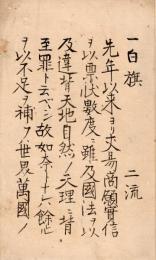 一白旗 二流
先年以来ヨリ交易商願
ヲ以數度ニ雖及國法ヲ以
及違背天地自然ノ天理ニ背
至罪ト云ベシ故如
ヲ以不足ヲ補フ世界萬國ノ